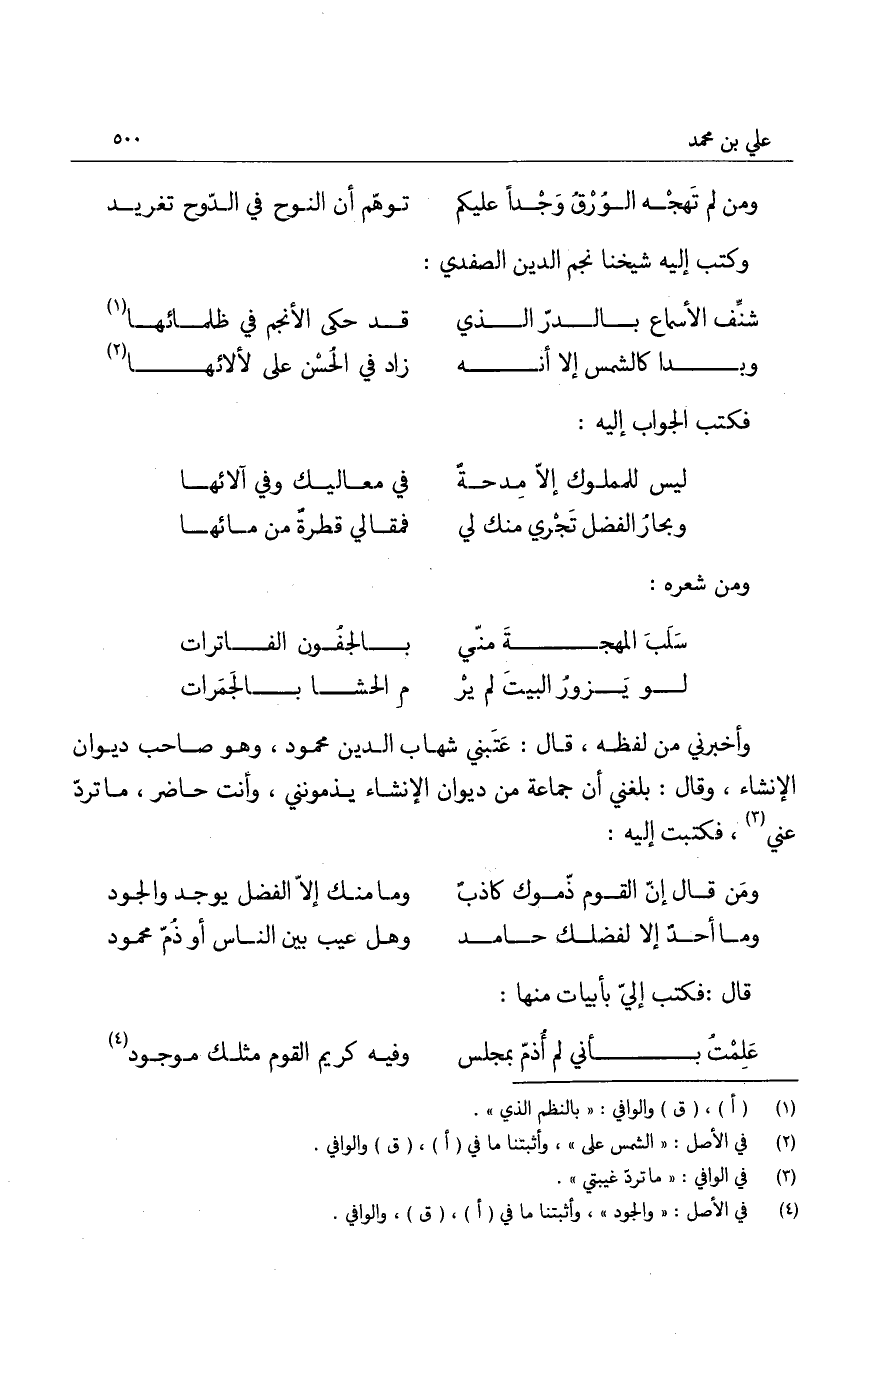 علي بن محمد ٥٠٠
ومن لم تَهجْـه الـوُرْقُ وَجْـداً عليكم تـوهّم أن النـوح في الـدّوح تغريـد
وكتب إليه شيخنا نجم الدين الصفدي :
شنِّف الأسماع بـالـدرّ الـذي قـد حكى الأنجم في ظلمـائهـا(١)
وبـدا كالشمس إلا أنـه زاد في الحُسْن على لألائهـا(٢)
فكتب الجواب إليه :
ليس للمملوك إلاّ مِدحـةٌ في معـاليـك وفي آلائهـا
وبحارُ الفضل تَجْري منك لي فمقـالي قطرةٌ من مـائهـا
ومن شعره :
سَلَبَ المهجـةَ منّي بـالجفُـون الفـاترات
لـو يَـزورُ البيتَ لم يرْ م الحشـا بـالجَمَرات
وأخبرني من لفظـه ، قـال : عَتَبني شهـاب الـدين محمود ، وهـو صـاحب ديـوان
الإنشاء ، وقال : بلغني أن جماعة من ديوان الإنشـاء يـذمونني ، وأنت حـاضر ، مـا تردّ
عني(٣) ، فكتبت إليه :
ومَن قـال إنّ القـوم ذّمـوك كاذبٌ ومـا منـك إلاّ الفضل يوجـد والجود
ومـا أحـدٌ إلا لفضلـك حـامـد وهـل عيب بين النـاس أو ذُمّ محمود
قال :فكتب إليّ بأبيات منها :
عَلِمْتُ بـأني لم أُذمّ بمجلس وفيـه كريم القوم مثلـك مـوجود(٤)
(١) ( أ ) ، ( ق ) والوافي : « بالنظم الذي » .
(٢) في الأصل : « الشمس على » ، وأثبتنا ما في ( أ ) ، ( ق ) والوافي .
(٣) في الوافي : « ما تردّ غيبتي » .
(٤) في الأصل : « والجود » ، وأثبتنا ما في ( أ ) ، ( ق ) ، والوافي .